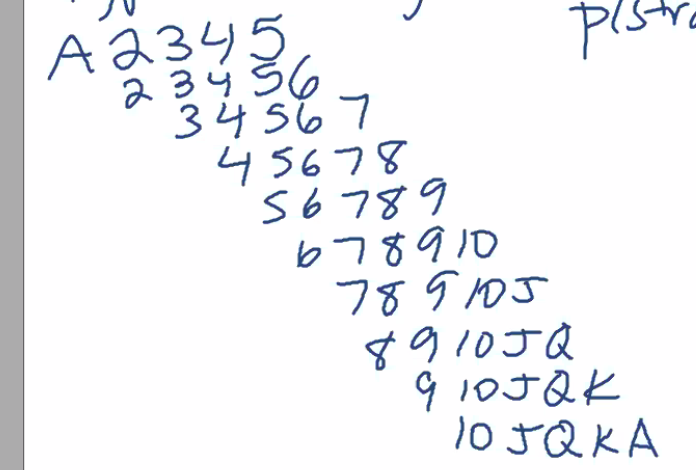 A 2 3 4 5
2 3 4 5 6
3 4 5 6 7
4 5 6 7 8
5 6 7 8 9
6 7 8 9 10
7 8 9 10 J
8 9 10 J Q
9 10 J Q K
10 J Q K A